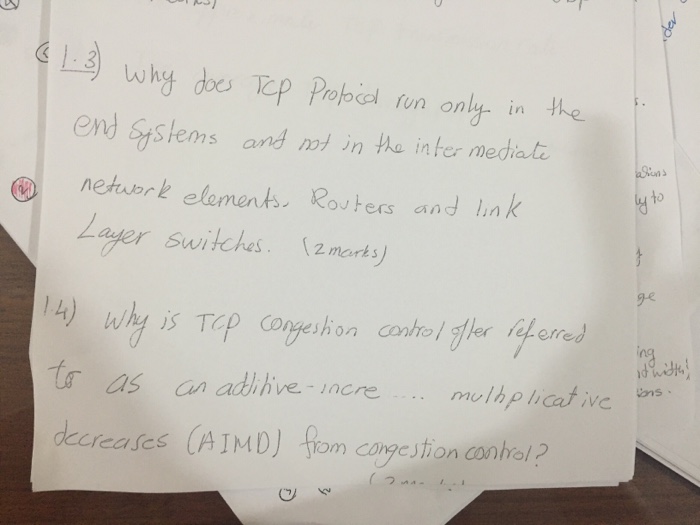 1.3) Why does TCP Protocol run only in the
end systems and not in the intermediate
network elements. Routers and link
Layer switches. (2 marks)
14) Why is TCP congestion control often referred
to as an additive-incre .... multiplicative
decreases (AIMD) from congestion control?
ly to
ge
ing